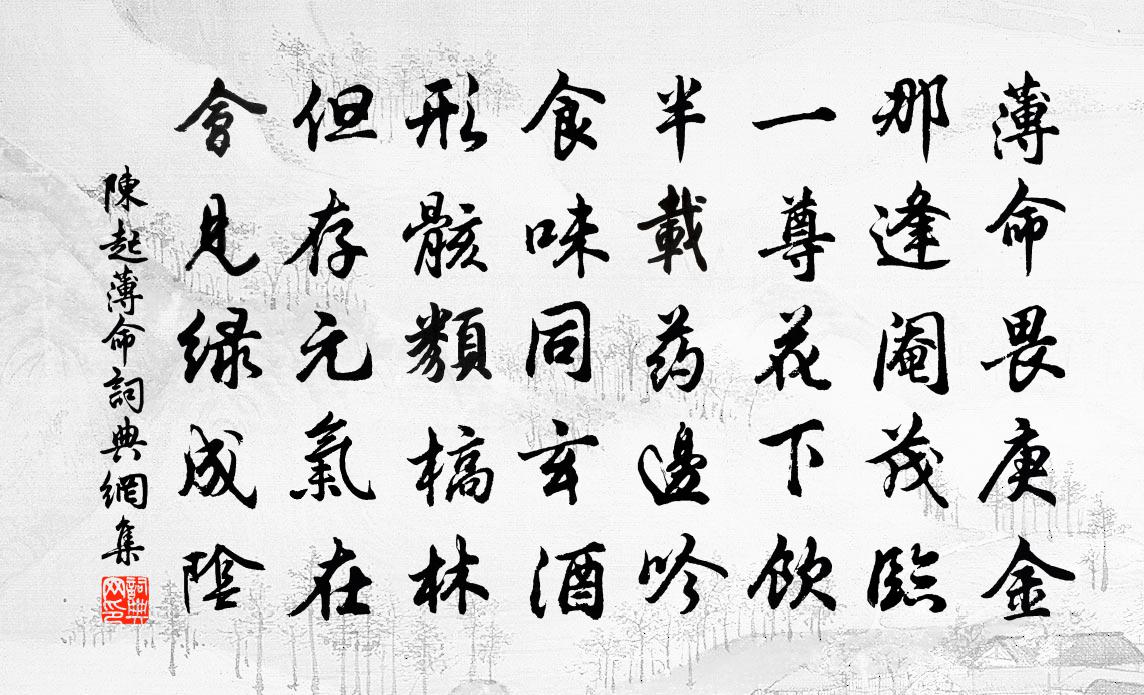 薄命畏庚金
那逢閹茂臨
一尊花下飲
半載药邊吟
食味同玄酒
形骸類槁林
但存元氣在
會見绿成陰
陳起薄命詞典網集
詞典網印